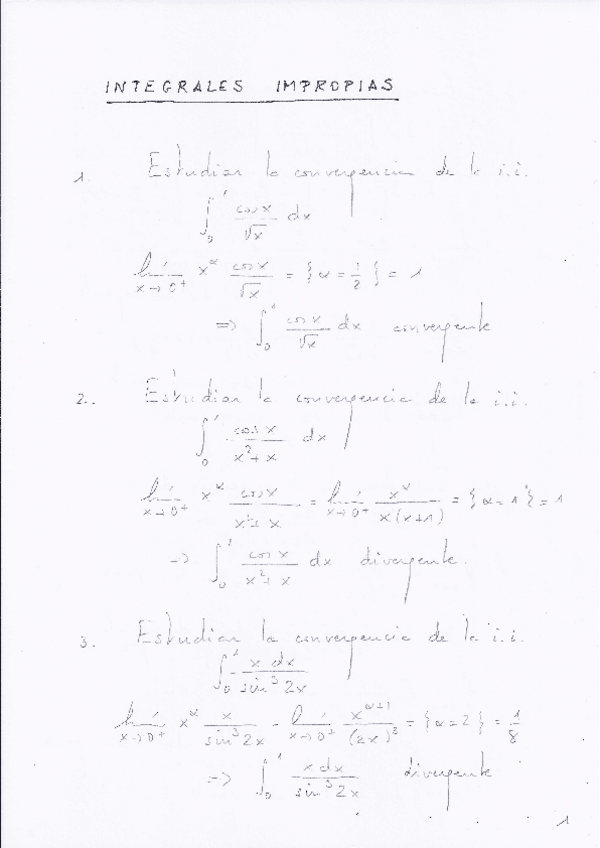 INTEGRALES IMPROPIAS
1. Estudiar la convergencia de la i.i.
∫₀¹ cos x / √x dx
lím x→0⁺ x^α cos x / √x = {α = 1/2} = 1
=> ∫₀¹ cos x / √x dx convergente
2. Estudiar la convergencia de la i.i.
∫₀¹ cos x / (x² + x) dx
lím x→0⁺ x^α cos x / (x² + x) = lím x→0⁺ x^α / x(x+1) = {α = 1} = 1
=> ∫₀¹ cos x / (x² + x) dx divergente.
3. Estudiar la convergencia de la i.i.
∫₀¹ x dx / sin³ 2x
lím x→0⁺ x^α x / sin³ 2x = lím x→0⁺ x^(α+1) / (2x)³ = {α = 2} = 1/8
=> ∫₀¹ x dx / sin³ 2x divergente
1